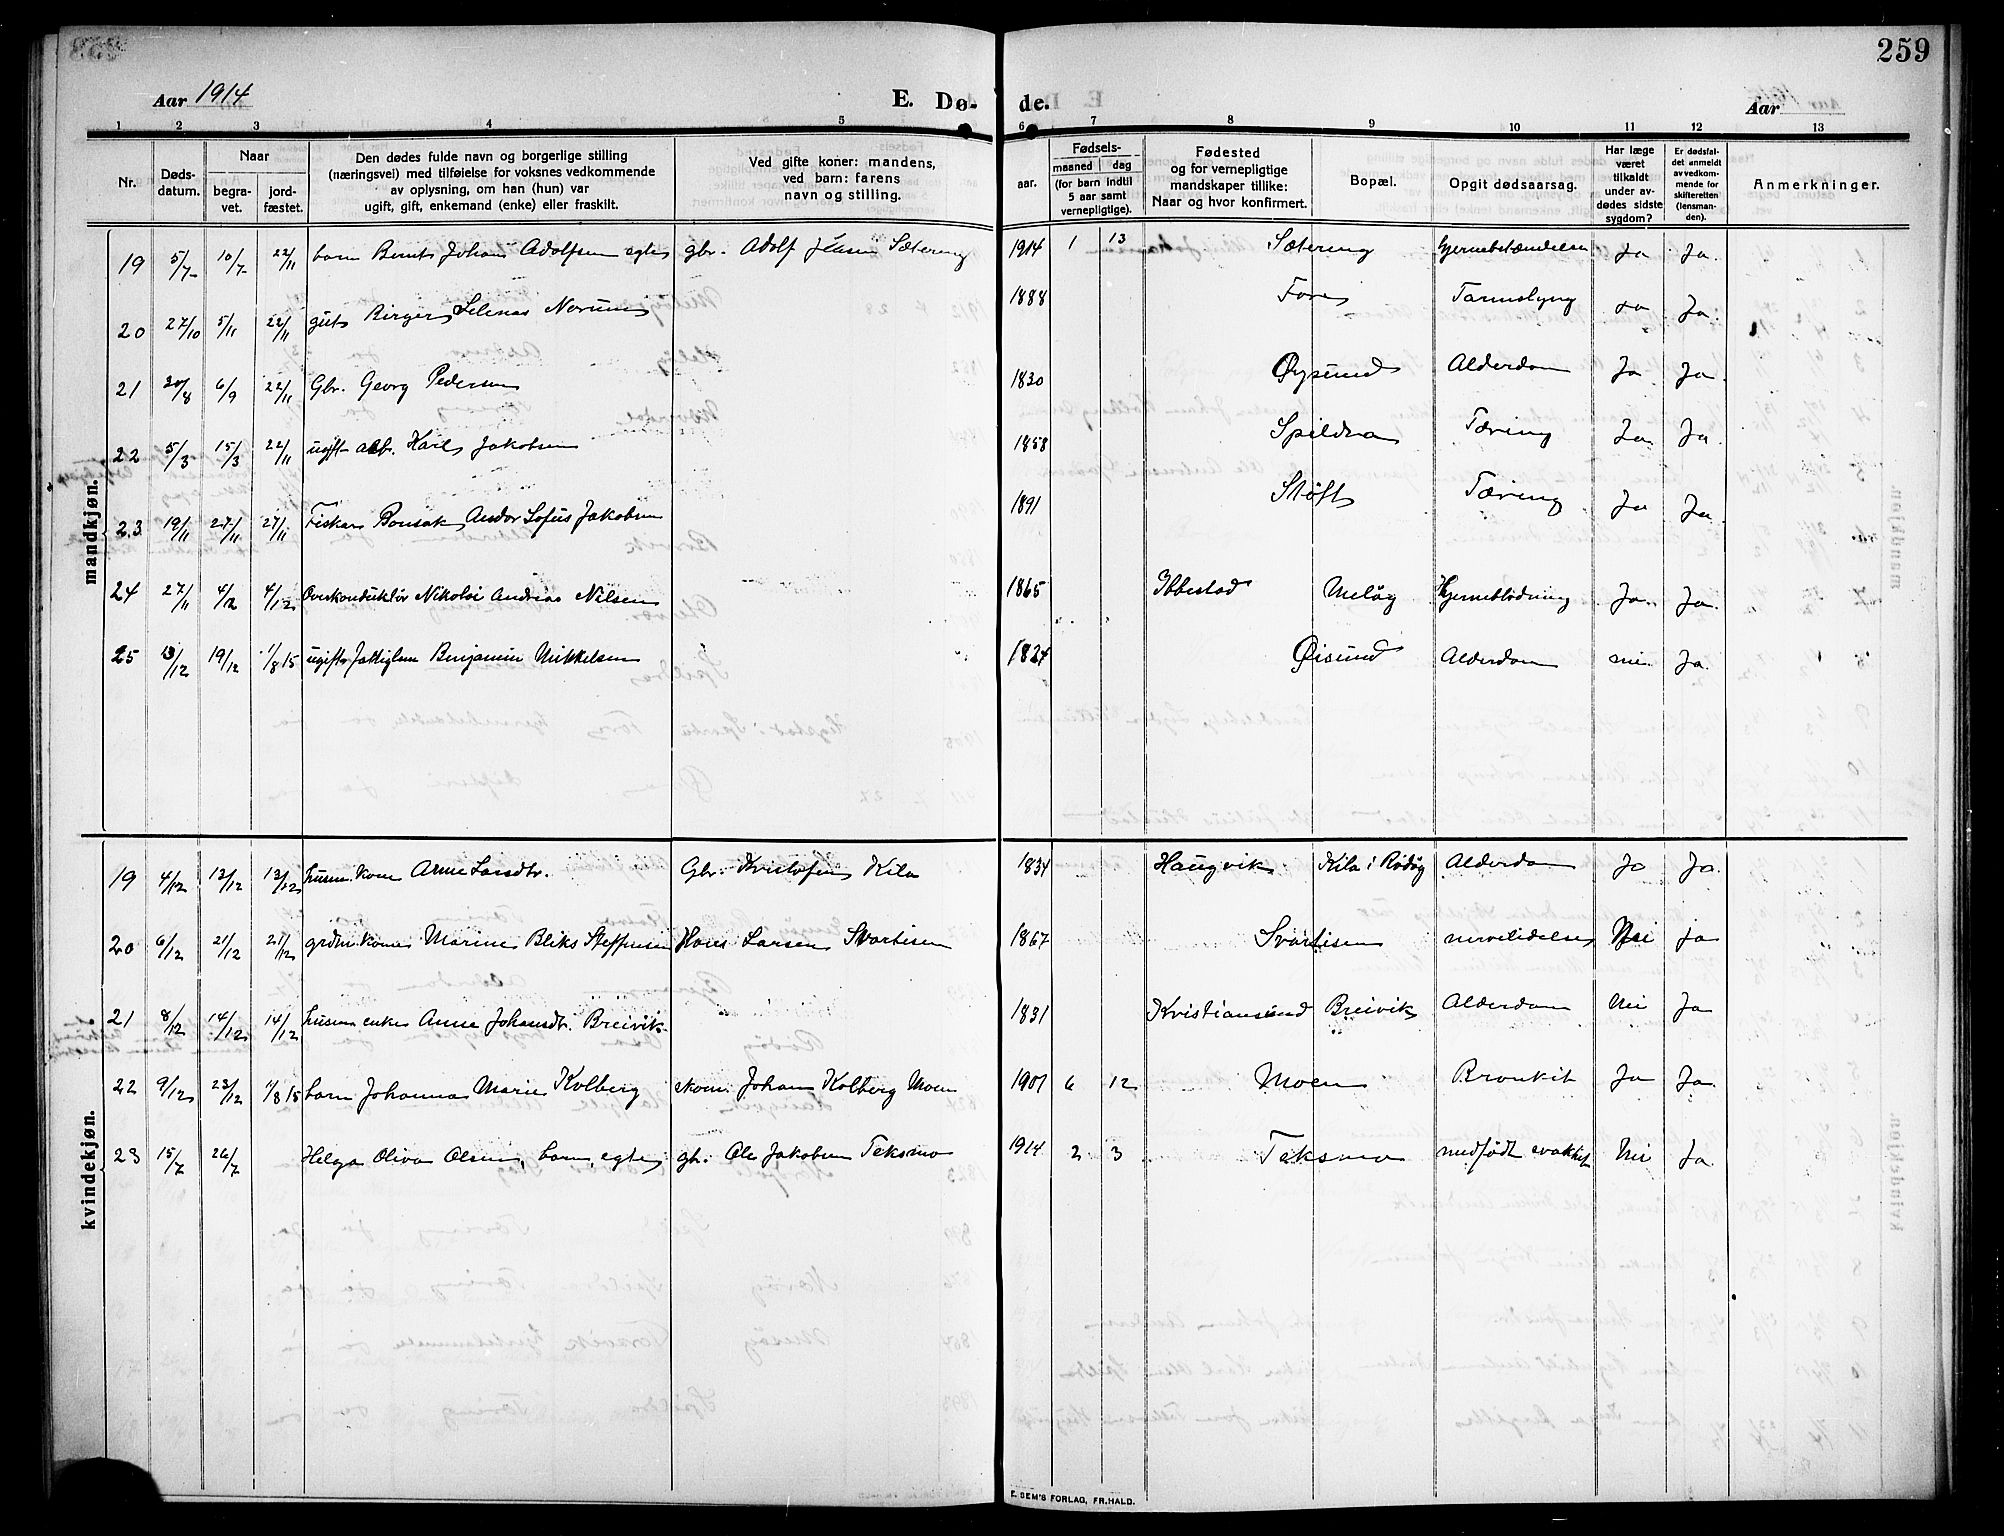 259
Aar 1914 E. Dø- de. Aar
1 2 3 4 5 6 7 8 9 10 11 12 13
Nr. Døds-datum. Naar begra-vet. jord-fæstet. Den dødes fulde navn og borgerlige stilling (næringsvei) med tilføielse for voksnes vedkommende av oplysning, om han (hun) var ugift, gift, enkemand (enke) eller fraskilt. Ved gifte koner: mandens, ved barn: farens navn og stilling. aar. Fødsels- maaned dag (for barn indtil 5 aar samt vernepligtige). Fødested og for vernepligtige mandskaper tillike: Naar og hvor konfirmert. Bopæl. Opgit dødsaarsag. Har læge været tilkaldt under av-dødes sidste sygdom? Er dødsfal-det anmeldt av vedkom-mende for skifteretten (lensman-den). Anmerkninger.
mandkjøn.
19 5/7 10/7 22/11 barn Bernt Johan Adolfsen egte gbr. Adolf Jensen Sætering 1914 1 13 Sætering Hjernebetændelse Ja Ja.
20 27/10 5/11 22/11 gift Birger Selenas Norum 1888 Fore Tarmslyng Ja Ja.
21 20/8 6/9 22/11 Gbr. Georg Pedersen 1830 Øysund Alderdom Ja Ja.
22 5/3 15/3 22/11 ugift arb. Karl Jakobsen 1858 Spildra Tæring Ja Ja
23 19/11 27/11 27/11 Fisker Bonsak Andor Sofus Jakobsen 1891 Støtt Tæring Ja Ja.
24 27/11 4/12 4/12 Overkonduktør Nikolai Andreas Nilsen 1865 Ibbestad Meløy Hjerneblødning Ja. Ja.
25 13/12 19/12 1/8 15 ugift Benjamin Mikkelsen 1834 Øisund Alderdom nei Ja.
kvindekjøn.
19 4/12 13/12 13/12 husm. kone Anne Larsdtr. Gbr. Kristofen Kila 1834 Haugvik Kila i Rødøy Alderdom Ja Ja.
20 6/12 21/12 21/12 grdm kone Marine Bliks Steffensen Hans Larsen Svartisen 1867 Svartisen nervelidelse Nei ja
21 8/12 14/12 14/12 husm enke Anne Johansdtr. Breivik 1831 Kristiansund Breivik Alderdom Nei Ja
22 9/12 23/12 1/8 15 barn Johanna Marie Kolberg skom. Johan Kolberg Moen 1901 6 12 Moen Bronkit Ja Ja.
23 15/7 26/7 Helga Oliva Olsen, barn, egte gb. Ole Jakobsen Teksmo 1914 2 3 Teksmo medfødt svakhet Nei Ja
E. SEM'S FORLAG, FR.HALD.